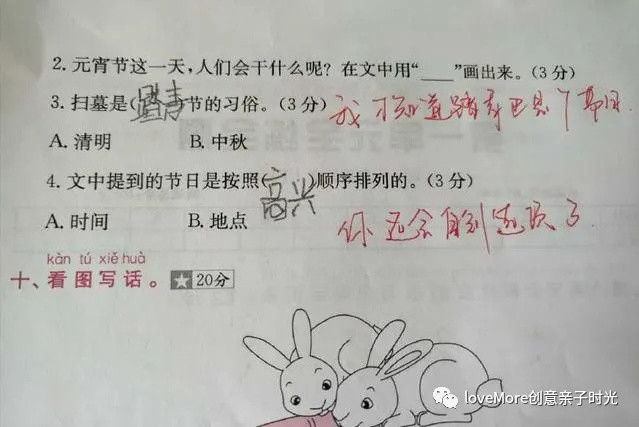 2. 元宵节这一天，人们会干什么呢？在文中用“____”画出来。（3 分）
3. 扫墓是（踏青）节的习俗。（3 分） 我才知道踏青也是个节日.
A. 清明 B. 中秋
4. 文中提到的节日是按照（高兴）顺序排列的。（3 分）
A. 时间 B. 地点 你还会自创选项了.
kàn tú xiě huà
十、看图写话。★20分
loveMore创意亲子时光